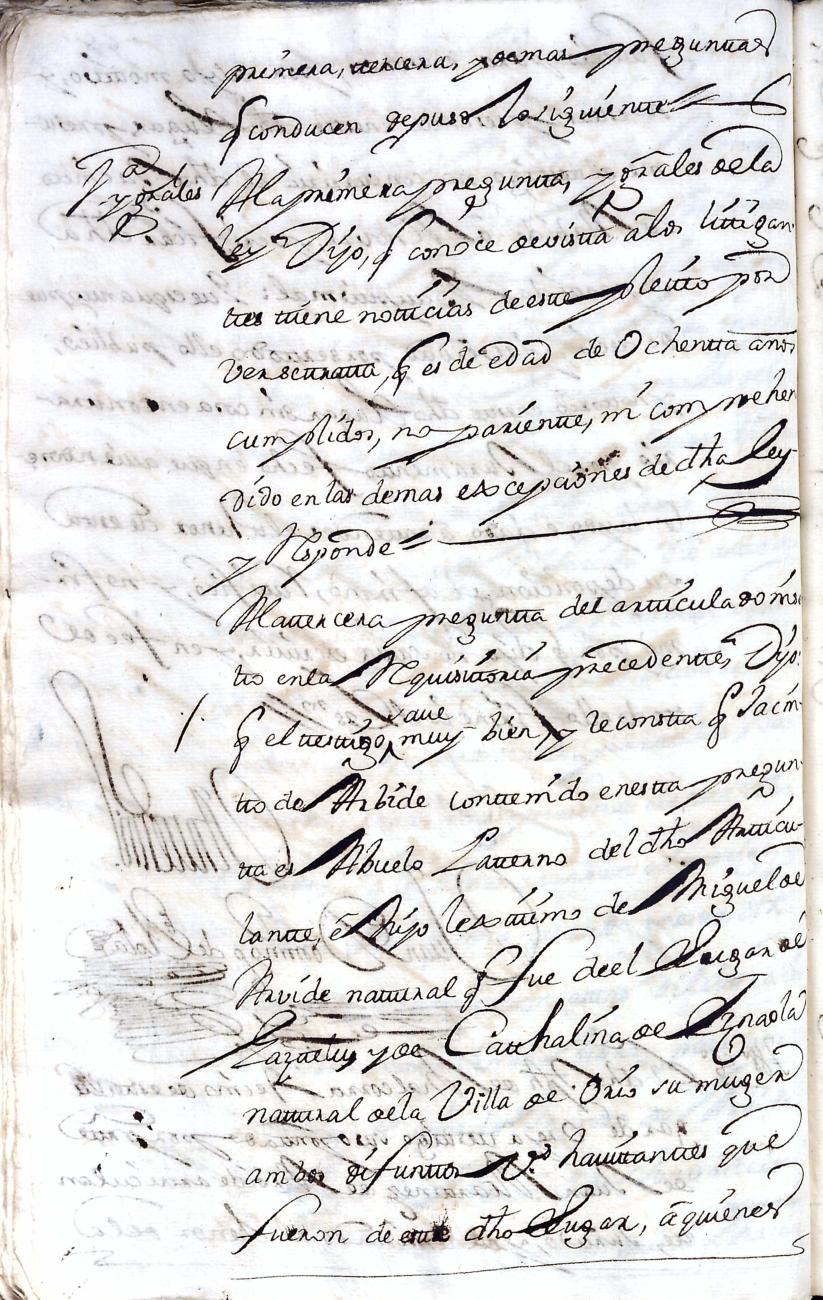 primera, tercera, y demas preguntas
q conducen depuso lo siguiente
1ª
y gr̃ales
A la primera pregunta, y gr̃ales de la
ley Dijo, q conoce de vista a los littigan-
ttes ttiene notticias de este pleitto por
ver se ttratta, q es de edad de Ochentta años
cumplidos, no parientte, ni comprehen
dido en las demas exxcepciones de dha Ley
y Responde
A la ttercera pregunta del artticulado ins
tto en la Requisittoria precedentte, Dijo
q el testtigo save muy bien, y le constta q Jacin-
tto de Arbide conttenido en estta pregun-
tta es Abuelo Patterno del dho Artticu-
lantte, è Hijo lexittimo de Miguel de
Arvide nattural q fue de el Lugar de
y de Catthalina de
nattural de la Villa de Orio su muger
ambos difunttos Vs havittanttes que
fueron de estte dho Lugar, a quienes